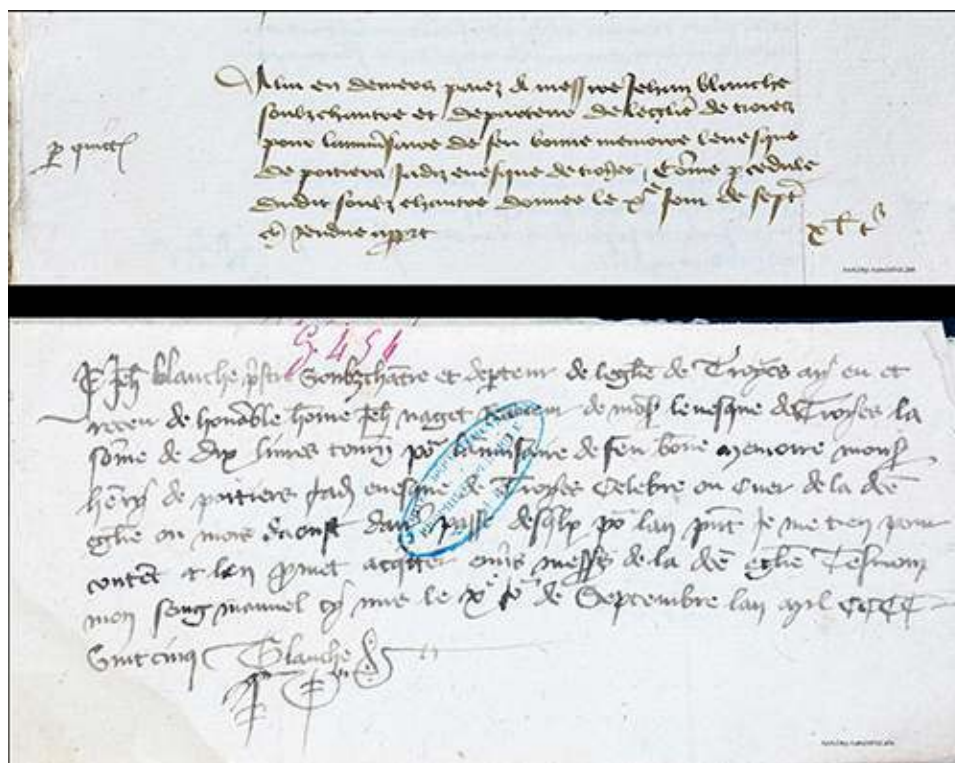 en deniers paiez a messire Jehan blanche
soubzchantre et departeur de leglise de troies
pour lanniversaire de feu bonne memoire levesque
de poitiers Jadiz evesque de troyes, Come p cedule
dudit soubzchantre donnee le xe jour de sept
cy rendue appert
p quict
G 454
Je Jeh blanche pstre Soubzchatre et depteur de leglise de Troyes ay eu et
receu de honorable home Jeh naget Receveur de mons levesque de Troyes la
some de dix livres tourn po lanniversaire de feu bone memoire mons
henry de poitiers Jadis evesque de Troyes Celebre ou cuer de la dce
eglise ou mois daoust passe po lan Je me tien pour
content et len promet acquiter envers messrs de la dce eglise Tesmoing
mon seing manuel cy mis le xe Jor de Septembre lan mil CCCC
vint cinq Blanche